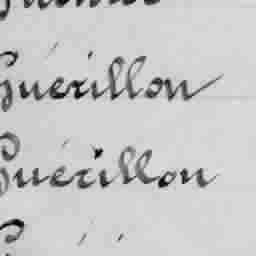 Guérillon
Guérillon